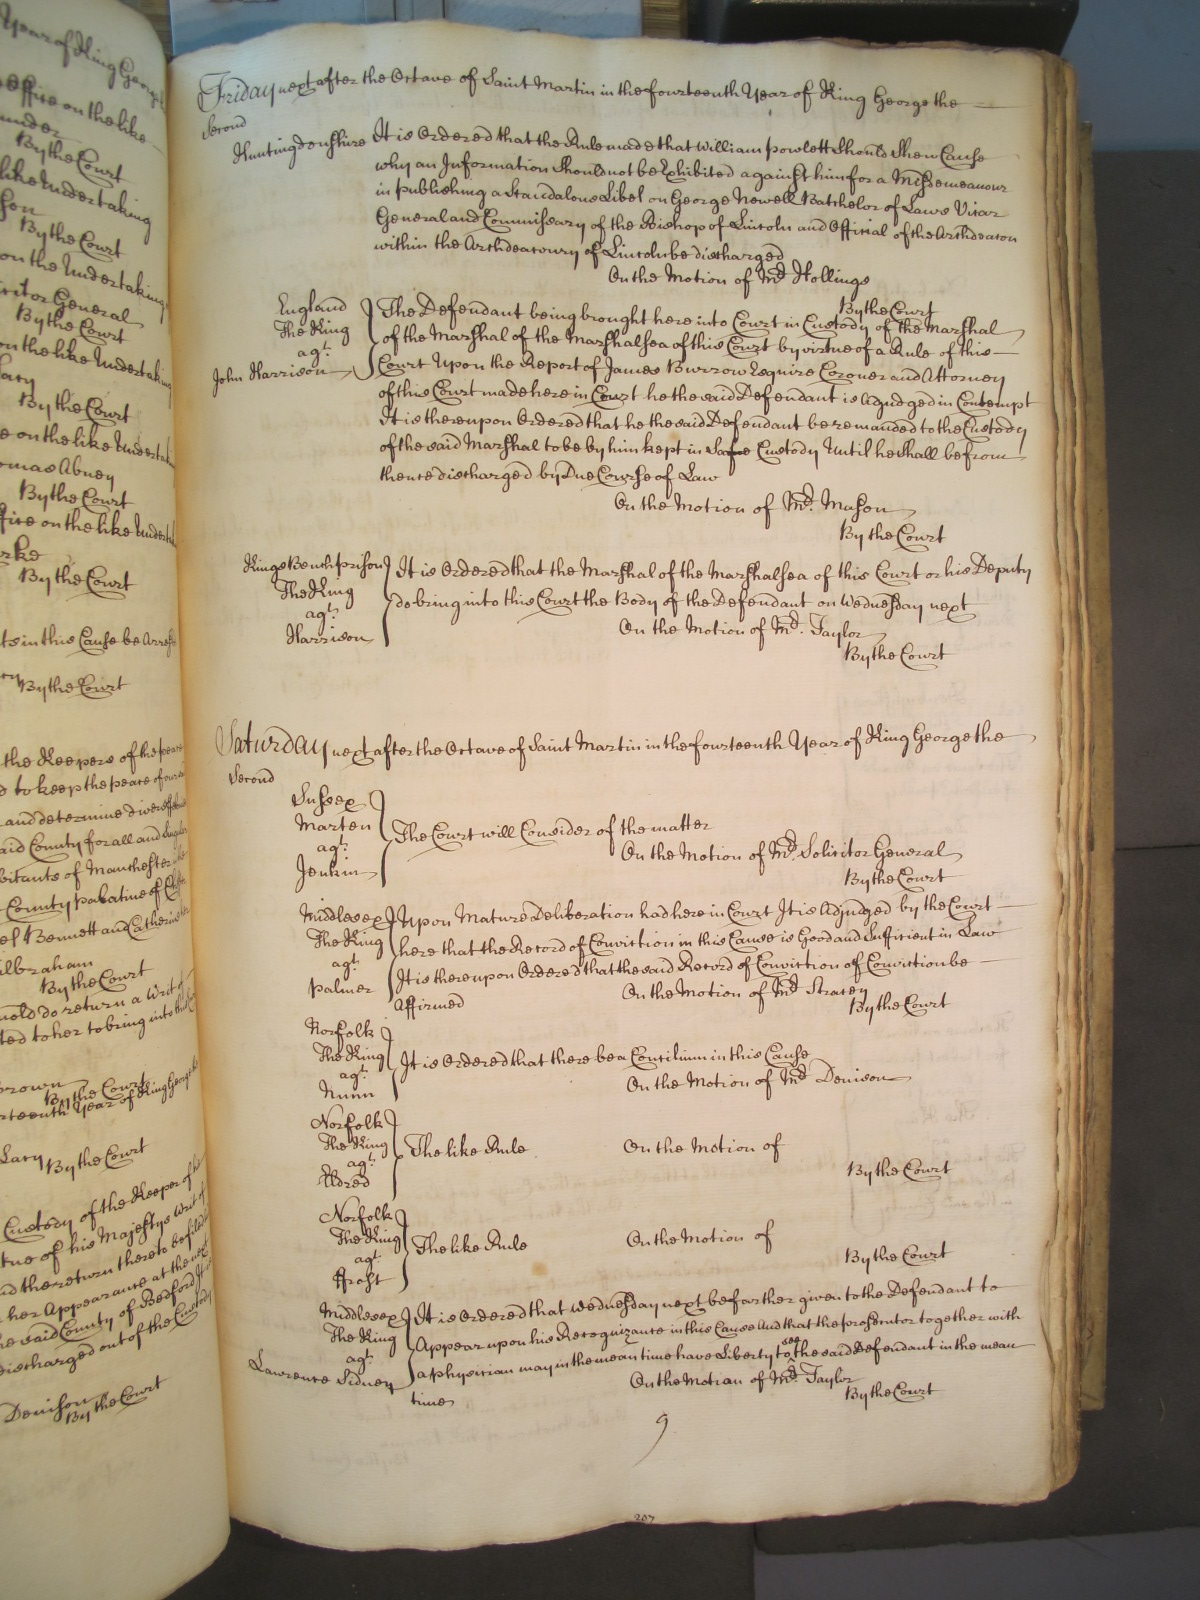 Year of King George
Office on the like
under
By the Court
like Undertaking
son
By the Court
on the Undertaking
icitor General
By the Court
on the like Undertaking
Lacy
By the Court
e on the like Undertak
omas Abney
By the Court
ffice on the like Undert
arke
By the Court
ts in this Cause be Arrest
By the Court
the Keepers of the peace
d to keep the peace of
and determine divers
aid County for all and
bitants of Manchester
County palatine of
el Bennett and Catherine
ilbraham
By the Court
nold do return a Writ of
ted to her to bring into
Brown
By the Court
rteenth Year of King George
Lacy
By the Court
Custody of the Keeper of
tue of his Majestys Writ of
nd the return thereto be filed
her Appearance at the next
he said County of Bedford
discharged out of the Custody
Denison
By the Court
Friday next after the Octave of Saint Martin in the fourteenth Year of King George the
Second
Huntingdonshire It is Ordered that the Rule made that William Powlett Should Shew Cause
why an Information Should not be Exhibited against him for a Misdemeanour
in publishing a Standalone Libel on George Newell Batchelor of Laws Vicar
General and Commissary of the Bishop of Lincoln and Official of the Archdeacon
within the Archdeaconry of Lincoln be discharged
On the Motion of Mr. Hollings
By the Court
England
The King
agt.
John Harrison
The Defendant being brought here into Court in Custody of the Marshal
of the Marshal of the Marshalsea of this Court by virtue of a Rule of this
Court Upon the Report of James Burrow Esquire Coroner and Attorney
of this Court made here in Court he the said Defendant is Adjudged in Contempt
It is thereupon Ordered that he the said Defendant be remanded to the Custody
of the said Marshal to be by him kept in Safe Custody Until he shall be from
thence discharged by Due Course of Law
On the Motion of Mr. Mason
By the Court
Kings Bench prison
The King
agt.
Harrison
It is Ordered that the Marshal of the Marshalsea of this Court or his Deputy
do bring into this Court the Body of the Defendant on Wednesday next
On the Motion of Mr. Taylor
By the Court
Saturday next after the Octave of Saint Martin in the fourteenth Year of King George the
Second
Sussex
Marten
agt.
Jenkin
The Court will Consider of the matter
On the Motion of Mr. Solicitor General
By the Court
Middlesex
The King
agt.
Palmer
Upon Mature Deliberation had here in Court It is Adjudged by the Court
here that the Record of Conviction in this Cause is Good and Sufficient in Law
It is thereupon Ordered that the said Record of Conviction of Conviction be
Affirmed
On the Motion of Mr. Stracey
By the Court
Norfolk
The King
agt.
Nunn
It is Ordered that there be a Concilium in this Cause
On the Motion of Mr. Denison
Norfolk
The King
agt.
Eldred
The like Rule On the Motion of
By the Court
Norfolk
The King
agt.
ffrost
The like Rule On the Motion of
By the Court
Middlesex
The King
agt.
Lawrence Sidney
It is Ordered that Wednesday next be farther given to the Defendant to
Appear upon his Recognizance in this Cause And that the prosecutor together with
a physician may in the mean time have Liberty to see the said Defendant in the mean
time
On the Motion of Mr. Taylor
By the Court
9
207